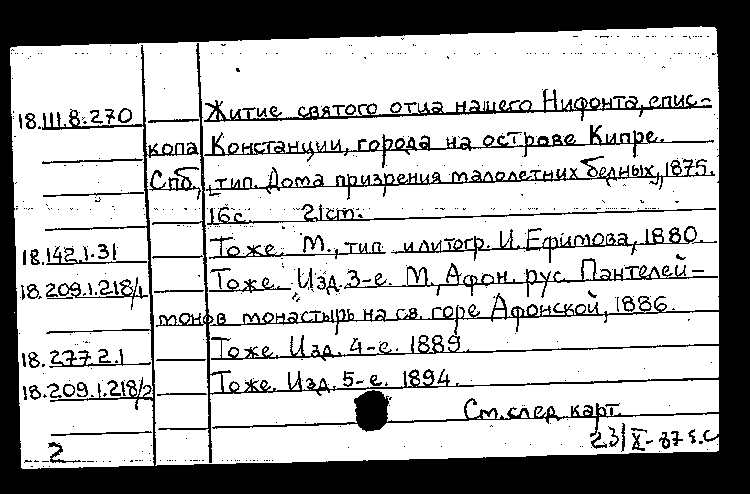 18.III.8.270 Житие святого отца нашего Нифонта, епис-
копа Констанции, города на острове Кипре.
Спб., тип. Дома призрения малолетних бедных, 1875.
16с. 21ст.
18.142.1.31 Тоже. М., тип. и литогр. И. Ефимова, 1880.
18.209.1.218/1 Тоже. Изд. 3-е. М., Афон. рус. Пантелей-
монов монастырь на св. горе Афонской, 1886.
18.277.2.1 Тоже. Изд. 4-е. 1889.
18.209.1.218/2 Тоже. Изд. 5-е. 1894.
См. след карт.
2 23/X-87